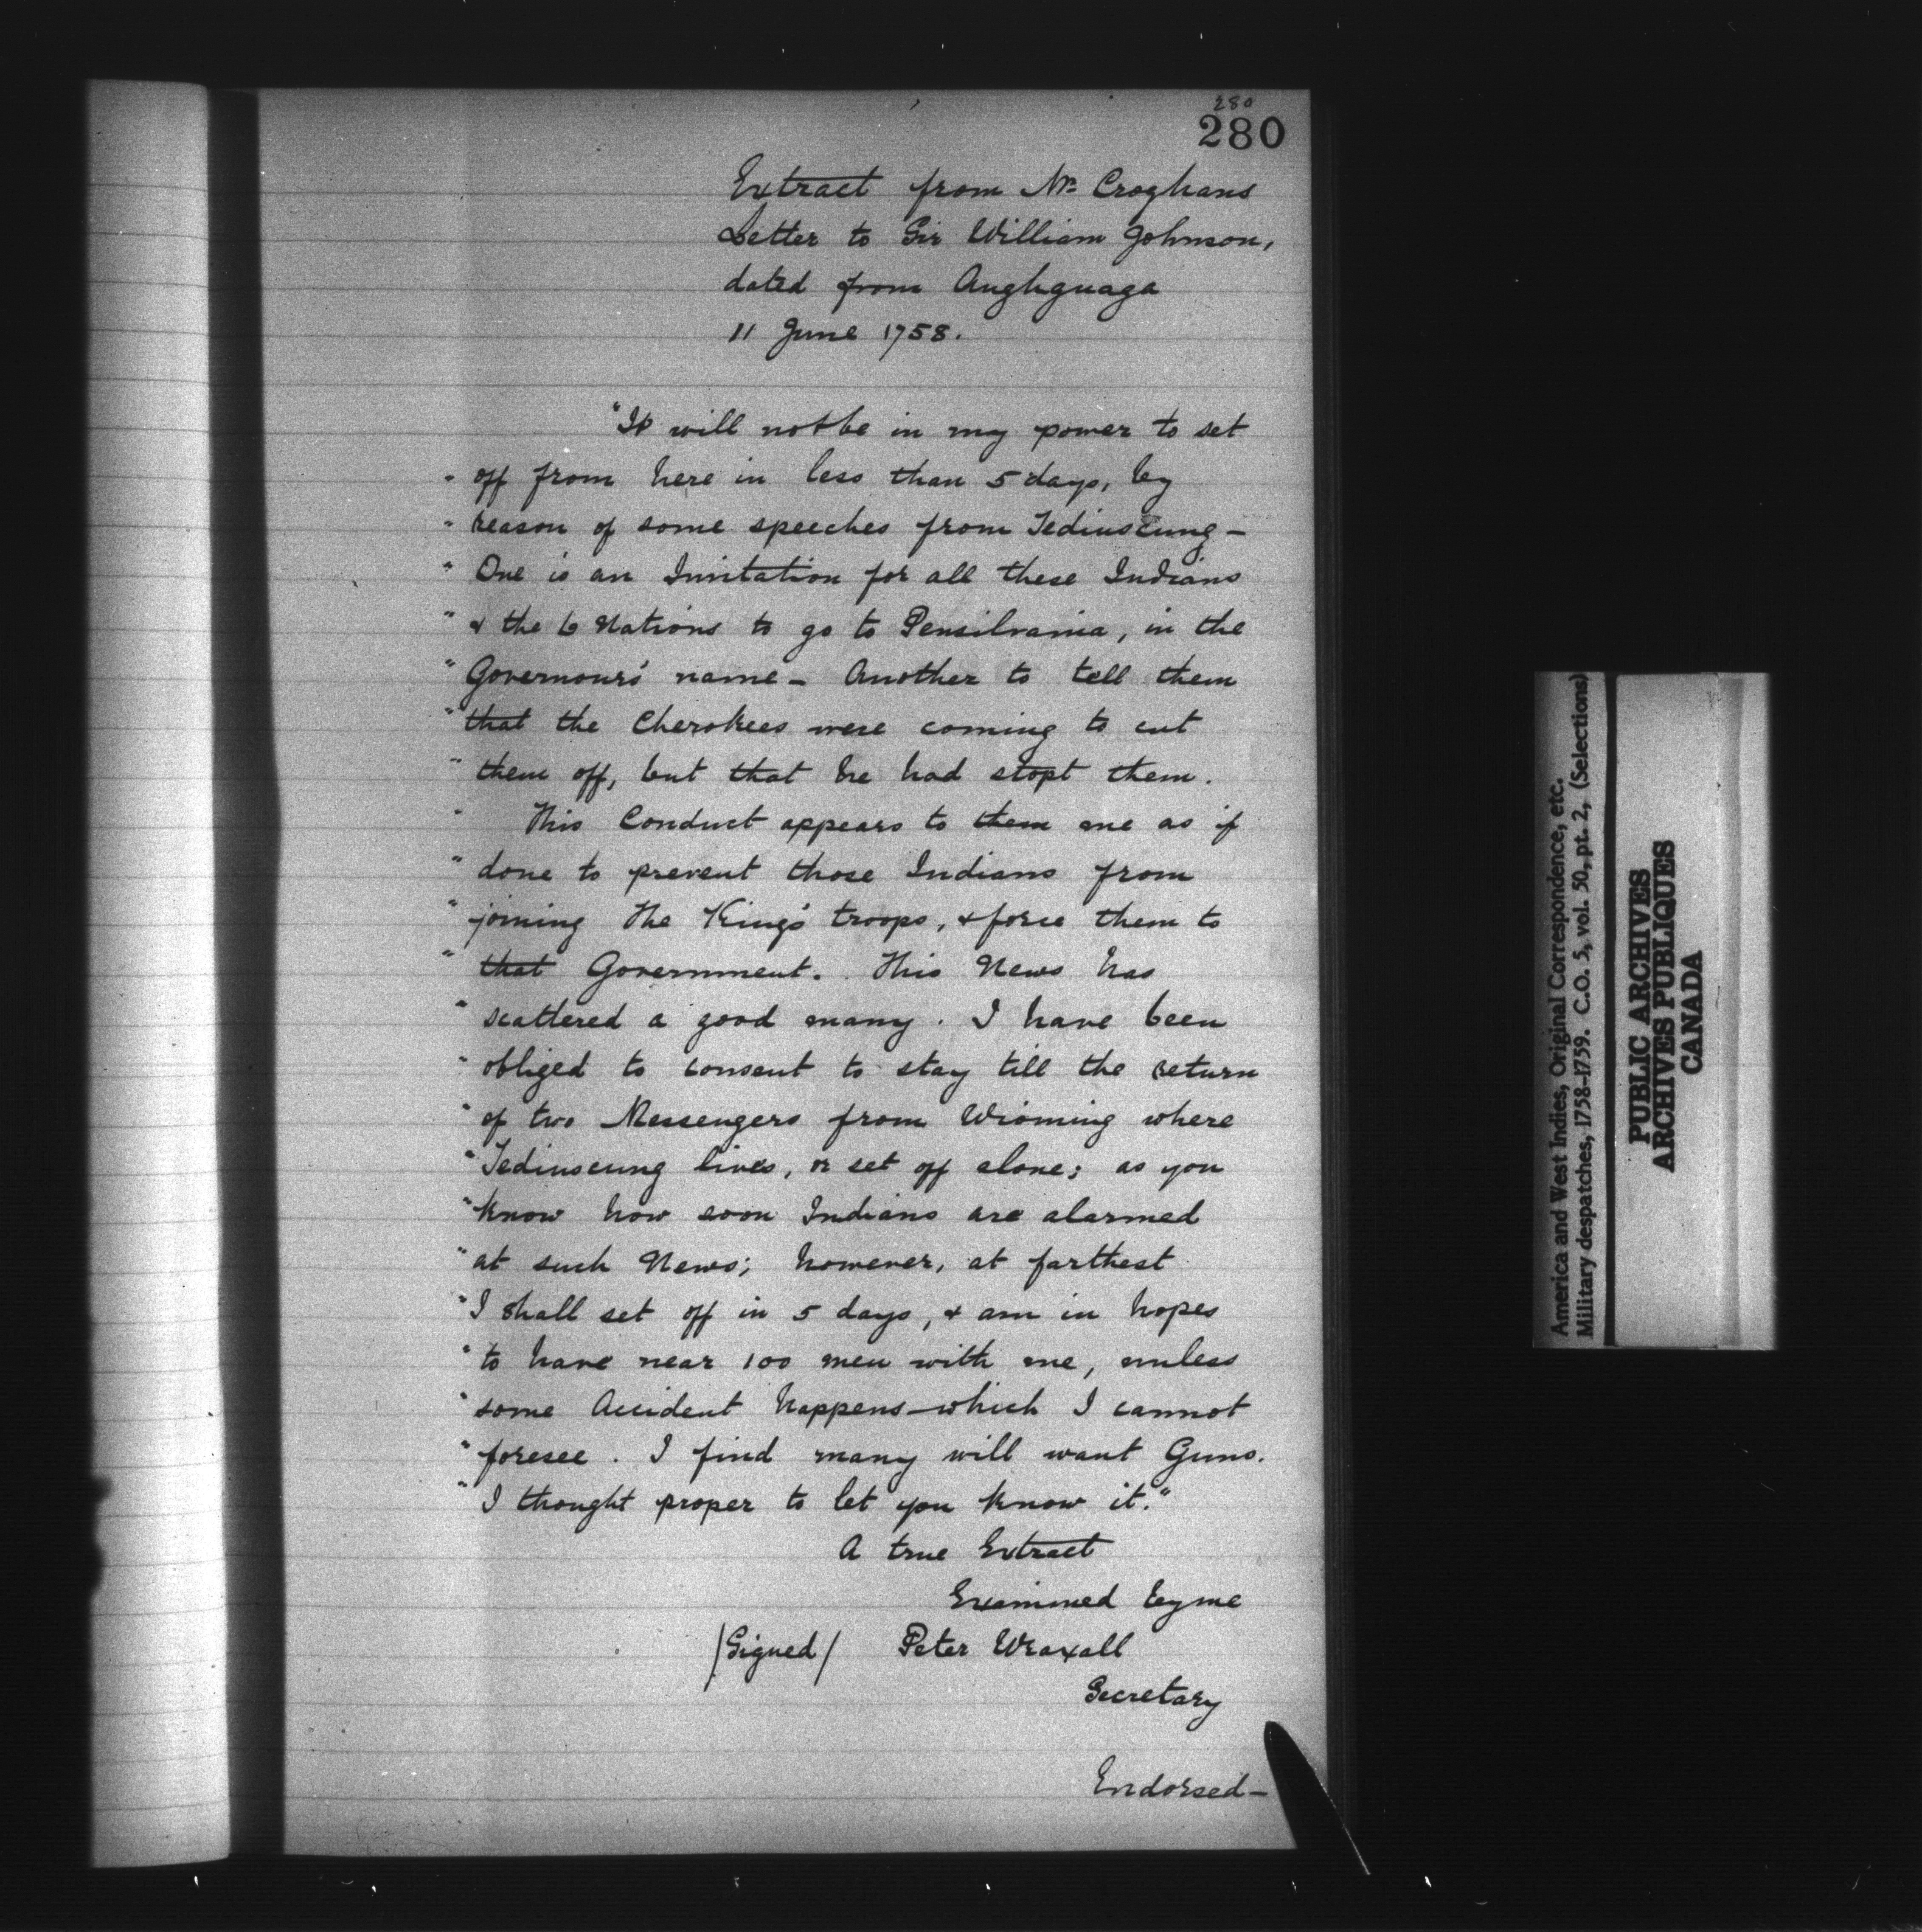 280
280
Extract from Mr. Croghans
Letter to Sir William Johnson,
dated from Aughguaga
11 June 1758.
"It will not be in my power to set
" off from here in less than 5 days, by
" reason of some speeches from Tediuscung -
" One is an Invitation for all these Indians
" & the 6 Nations to go to Pensilvania, in the
" Governours' name - Another to tell them
" that the Cherokees were coming to cut
" them off, but that he had stopt them.
" This Conduct appears to them me as if
" done to prevent those Indians from
" joining the King's troops, & force them to
" that Government. This News has
" scattered a good many. I have been
" obliged to consent to stay till the return
" of two Messengers from Wioming where
" Tediuscung lives, or set off alone; as you
" know how soon Indians are alarmed
" at such News; however, at farthest
" I shall set off in 5 days, & am in hopes
" to have near 100 men with me, unless
" some Accident happens - which I cannot
" foresee. I find many will want Guns.
" I thought proper to let you know it."
A true Extract
Examined by me
/Signed/ Peter Wraxall
Secretary
Endorsed -
America and West Indies, Original Correspondence, etc.
Military despatches, 1758-1759. C.O. 5, vol. 50, pt. 2, (Selections)
PUBLIC ARCHIVES
ARCHIVES PUBLIQUES
CANADA